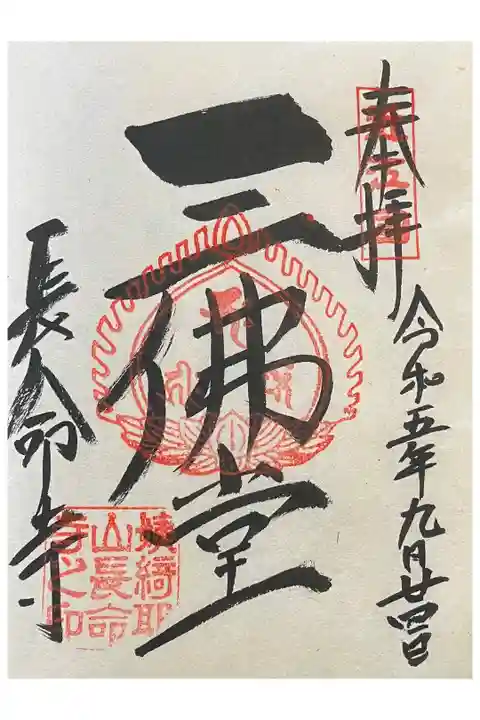 奉拝
令和五年九月廿四日
三佛堂
長命寺
姨綺耶
山長命
寺之印